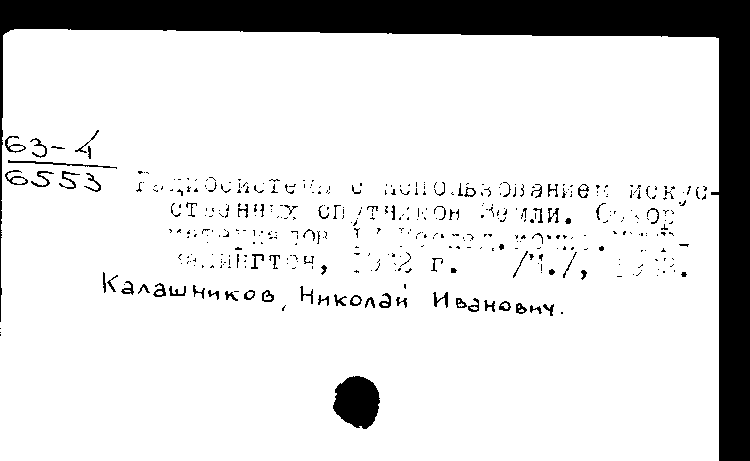 63-4
6553
Радиосистемы с использованием искус-
ственных спутников Земли. Обзор
материалов
Вашингтон, 1962 г. /М./,
Калашников, Николай Иванович.